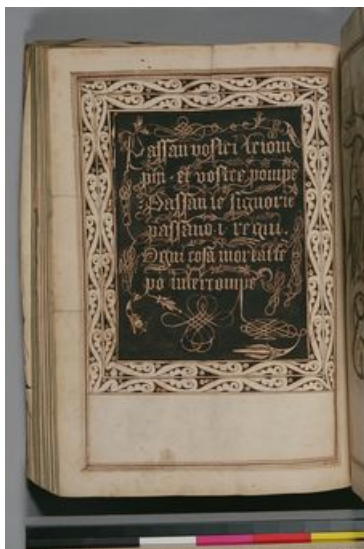 Passan vostri trion
phi · et vostre pompe
Passan le signorie
passano · i · regni.
Ogni cosa mortal tē
po interrompe